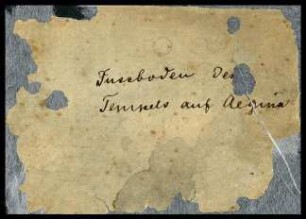 Fussboden des
Tempels auf Aegina